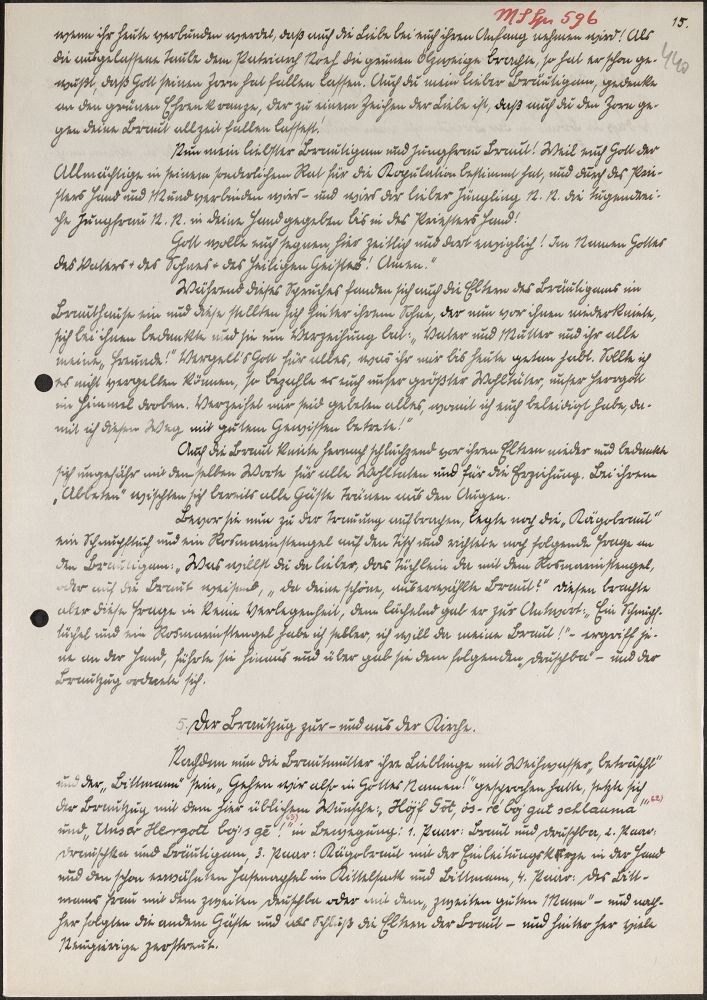 MS Spr 596
15.
440
wenn ihr heute verbunden werdet, daß auch die Liebe bei euch ihren Anfang nehmen wird! Als
die ausgelassene Taube dem Patriarch Noeh die grünen Ölzweige brachte, so hat er schon ge-
wußt, daß Gott seinen Zorn hat fallen lassen. Auch du mein lieber Bräutigam, gedenke
an den grünen Ehrenkranze, der zu einem Zeichen der Liebe ist, daß auch du den Zorn ge-
gen deine Braut allzeit fallen lassest!
Nun mein liebster Bräutigam und Jungfrau Braut! Weil euch Gott der
Allmächtige in seinem sonderlichen Rat für die Kopulation bestimmt hat, und durch des Prie-
sters Hand und Mund verbinden wird – und wird der lieber Jüngling N. N. die tugendrei-
che Jungfrau N. N. in deine Hand gegeben bis in des Priesters Hand!
Gott wolle euch segnen, hier zeitlich und dort ewiglich! Im Namen Gottes
des Vaters + des Sohnes + des heiligen Geistes! Amen."
Während dieses Spruches fanden sich auch die Eltern des Bräutigams im
Brauthause ein und diese stellten sich hinter ihrem Sohne, der nun vor ihnen niederkniete,
sich bei ihnen bedankte und sie um Verzeihung bat: „Vater und Mutter und ihr alle
meine „Freunde!" Vergelt's Gott für alles, was ihr mir bis heute getan habt. Sollte ich
es nicht vergelten können, so bezahle es euch unser größter Wohltäter, unser Herrgott
im Himmel droben. Verzeihet mir seid gebeten alles, womit ich euch beleidigt habe, da-
mit ich diesen Weg mit gutem Gewissen betrete!"
Auch die Braut kniete hernach schluchzend vor ihren Eltern nieder und bedankte
sich ungefähr mit denselben Worte für alle Wohltaten und für die Erziehung. Bei ihrem
„Abbeten" wischten sich bereits alle Gäste Tränen aus den Augen.
Bevor sie nun zu der Trauung aufbrachen, legte noch die „Kägobraut"
ein Schnupftuch und ein Rosmareinstengel auf den Tisch und richtete noch folgende Frage an
den Bräutigam: „Was willst du da lieber, das Tüchlein da mit dem Rosmareinstengel,
oder auf die Braut weisend, „da deine schöne, auserwählte Braut?" Diesen brachte
aber diese Frage in keine Verlegenheit, denn lächelnd gab er zur Antwort: „Ein Schnupf-
tüchel und ein Rosmareinstengel habe ich selber, ich will da meine Braut!" – ergriff je-
ne an der Hand, führte sie hinaus und über gab sie dem folgenden „Druschba" – und der
Brautzug ordnete sich.
5. Der Brautzug zur – und aus der Kirche.
Nachdem nun die Brautmutter ihre Lieblinge mit Weihwasser „beträuscht"
und der „Bittmann" sein „Gehen wir also in Gottes Namen!" gesprochen hatte, setzte sich
der Brautzug mit dem hier üblichem Wunsche: „Höjf Got, os-re boj gut schlauma" 62)
und „Unsér Hergott boj's gè!" 63) in Bewegung: 1. Paar: Braut und Druschba, 2. Paar:
Druschka und Bräutigam, 3. Paar: Kägobraut mit der Einleitungskerze in der Hand
und den schon erwähnten Hasenaphel im Kittelsack und Bittmann, 4. Paar: des Bitt-
manns Frau mit dem zweiten Druschba oder mit dem „zweiten guten Mann" – und nach-
her folgten die andern Gäste und als Schluß die Eltern der Braut – und hinter her viele
Neugierige zerstreut.